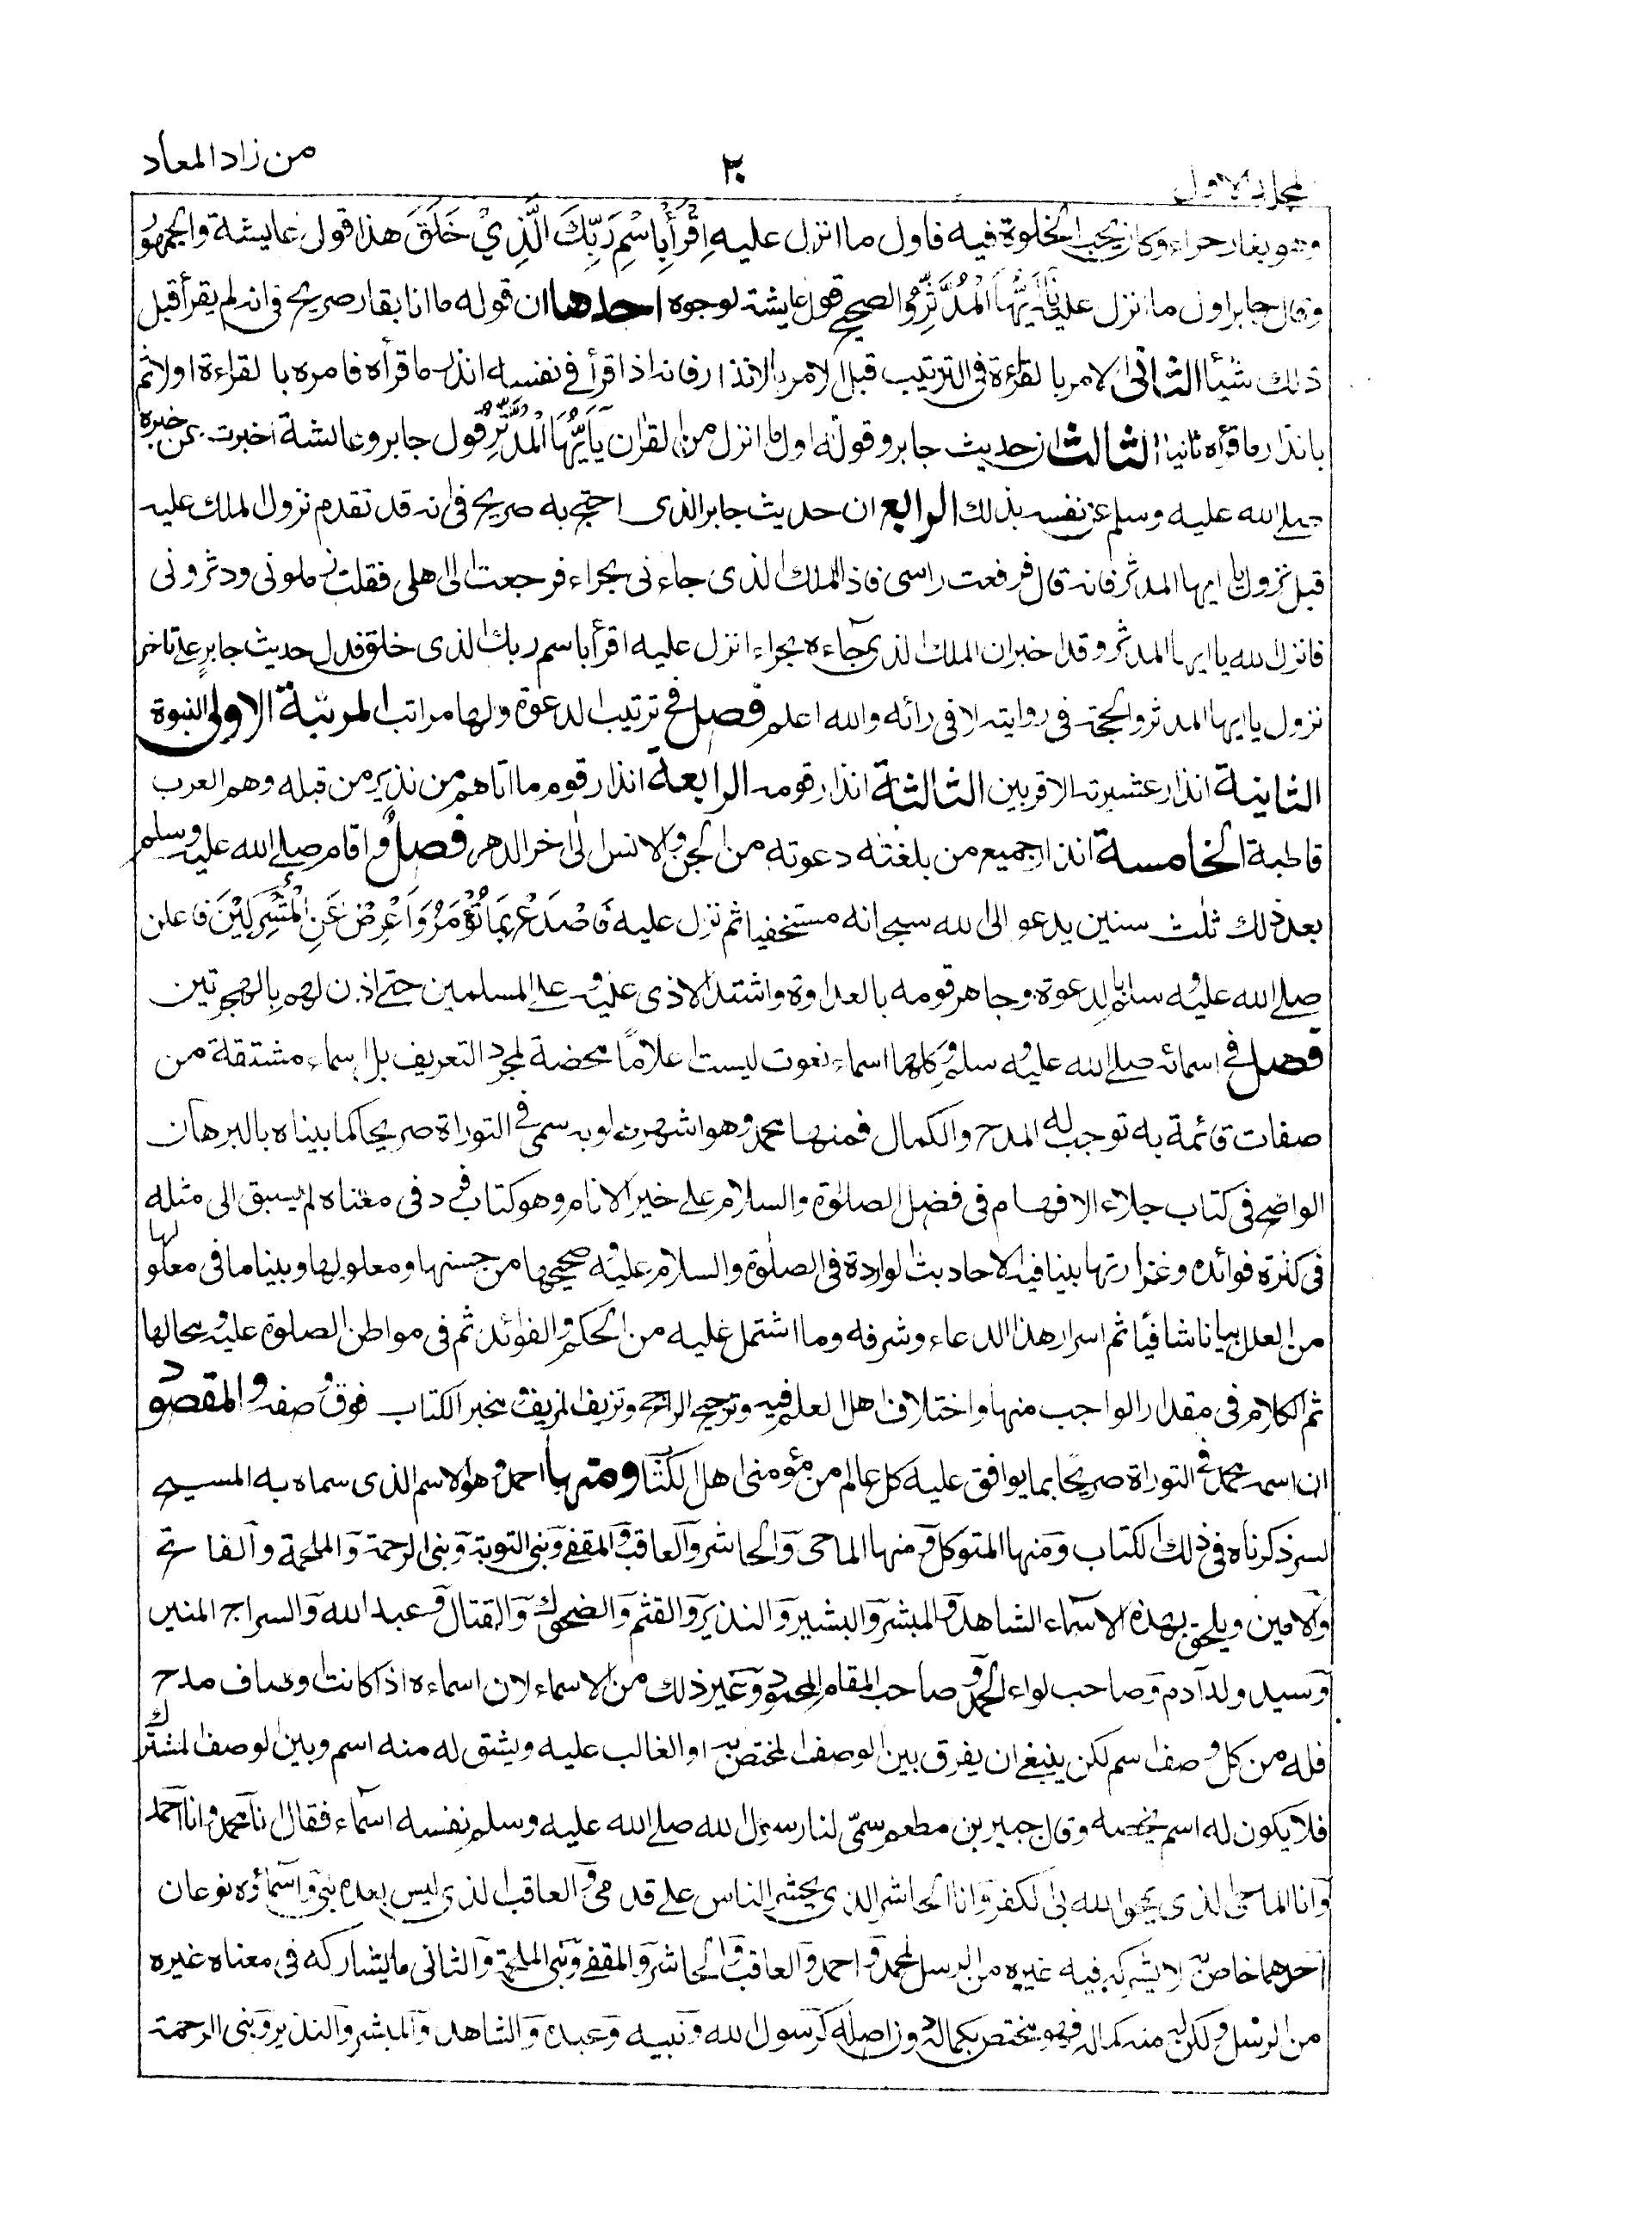 المجلد الاول
٢٠
من زاد المعاد
وهو بغار حراء وكان يحب الخلوة فيه فاول ما انزل عليه اِقْرَأْ بِاسْمِ رَبِّكَ الَّذِيْ خَلَقَ هذا قول عايشة والجمهور
وقال جابر اول ما نزل عليه يَآ اَيُّهَا الْمُدَّثِّرُ والصحيح قول عايشة لوجوه احدها ان قوله ما انا بقار صريح فى انه لم يقرأ قبل
ذلك شيئا الثانى الامر بالقراءة فى الترتيب قبل الامر بالانذار فانه اذا قرأ فى نفسه انذر ما قرأه فامره بالقراءة اولا ثم
بانذار ما قرأه ثانيا الثالث ان حديث جابر وقوله اول ما انزل من القران يَآ اَيُّهَا الْمُدَّثِّرُ قول جابر وعائشة اخبرت عن خبره
صلى الله عليه وسلم عن نفسه بذلك الرابع ان حديث جابر الذى احتج به صريح فى انه قد تقدم نزول الملك عليه
قبل نزول يا ايها المدثر فانه قال فرفعت راسى فاذا الملك الذى جاءنى بحراء فرجعت الى اهلى فقلت زملونى ودثرونى
فانزل الله يا ايها المدثر وقد اخبر ان الملك الذى جاءه بحراء انزل عليه اقرأ باسم ربك الذى خلق فدل حديث جابر على تاخر
نزول يا ايها المدثر والحجة فى روايته لا فى رائه والله اعلم فصل فى ترتيب الدعوة ولها مراتب المرتبة الاولى النبوة
الثانية انذار عشيرته الاقربين الثالثة انذار قومه الرابعة انذار قوم ما اتاهم من نذير من قبله وهم العرب
قاطبة الخامسة انذار جميع من بلغته دعوته من الجن والانس الى اخر الدهر فصل واقام صلى الله عليه وسلم
بعد ذلك ثلث سنين يدعو الى الله سبحانه مستخفيا ثم نزل عليه فَاصْدَعْ بِمَا تُؤْمَرُ وَاَعْرِضْ عَنِ الْمُشْرِكِيْنَ فاعلن
صلى الله عليه وسلم بالدعوة وجاهر قومه بالعداوة واشتد الاذى عليه وعلى المسلمين حتى اذن لهم بالهجرتين
فصل فى اسمائه صلى الله عليه وسلم وكلها اسماء نعوت ليست اعلامًا محضة لمجرد التعريف بل اسماء مشتقة من
صفات قائمة به توجب له المدح والكمال فمنها محمد وهو اشهرها وبه سمى فى التوراة صريحا كما بيناه بالبرهان
الواضح فى كتاب جلاء الافهام فى فضل الصلوة والسلام على خير الانام وهو كتاب فرد فى معناه لم يسبق الى مثله
فى كثرة فوائده وغزارتها بينا فيه الاحاديث الواردة فى الصلوة والسلام عليه وصحيحها من حسنها ومعلولها وبينا ما فى معلولها
من العلل بيانا شافيًا ثم اسرار هذا الدعاء وشرفه وما اشتمل عليه من الحكم والفوائد ثم فى مواطن الصلوة عليه ومحالها
ثم الكلام فى مقدار الواجب منها واختلاف اهل العلم فيه وترجيح الراجح وتزييف المزيف ومخبر الكتاب فوق وصفه والمقصود
ان اسمه محمد فى التوراة صريحًا بما يوافق عليه كل عالم من مؤمنى اهل الكتاب ومنها احمد وهو الاسم الذى سماه به المسيح
لسر ذكرناه فى ذلك الكتاب ومنها المتوكل ومنها الماحى والحاشر والعاقب والمقفى ونبى التوبة ونبى الرحمة والملحمة والفاتح
والامين ويلحق بهذه الاسماء الشاهد والمبشر والبشير والنذير والقثم والضحوك والقتال وعبد الله والسراج المنير
وسيد ولد آدم وصاحب لواء الحمد وصاحب المقام المحمود وغير ذلك من الاسماء لان اسماءه اذا كانت اوصاف مدح
فله من كل وصف اسم لكن ينبغى ان يفرق بين الوصف المختص به او الغالب عليه ويشتق له منه اسم وبين الوصف المشترك
فلا يكون له اسم يخصه وقال جبير بن مطعم سمّى لنا رسول الله صلى الله عليه وسلم نفسه اسماء فقال انا محمد وانا احمد
وانا الماحى الذى يمحو الله بى الكفر وانا الحاشر الذى يحشر الناس على قدمى والعاقب الذى ليس بعده نبى واسماؤه نوعان
احدهما خاص به لا يشركه فيه غيره من الرسل كمحمد واحمد والعاقب والحاشر والمقفى ونبى الملحمة والثانى ما يشاركه فى معناه غيره
من الرسل ولكن له منه كماله فهو مختص بكماله دون اصله كرسول الله ونبيه وعبده والشاهد والمبشر والنذير ونبى الرحمة